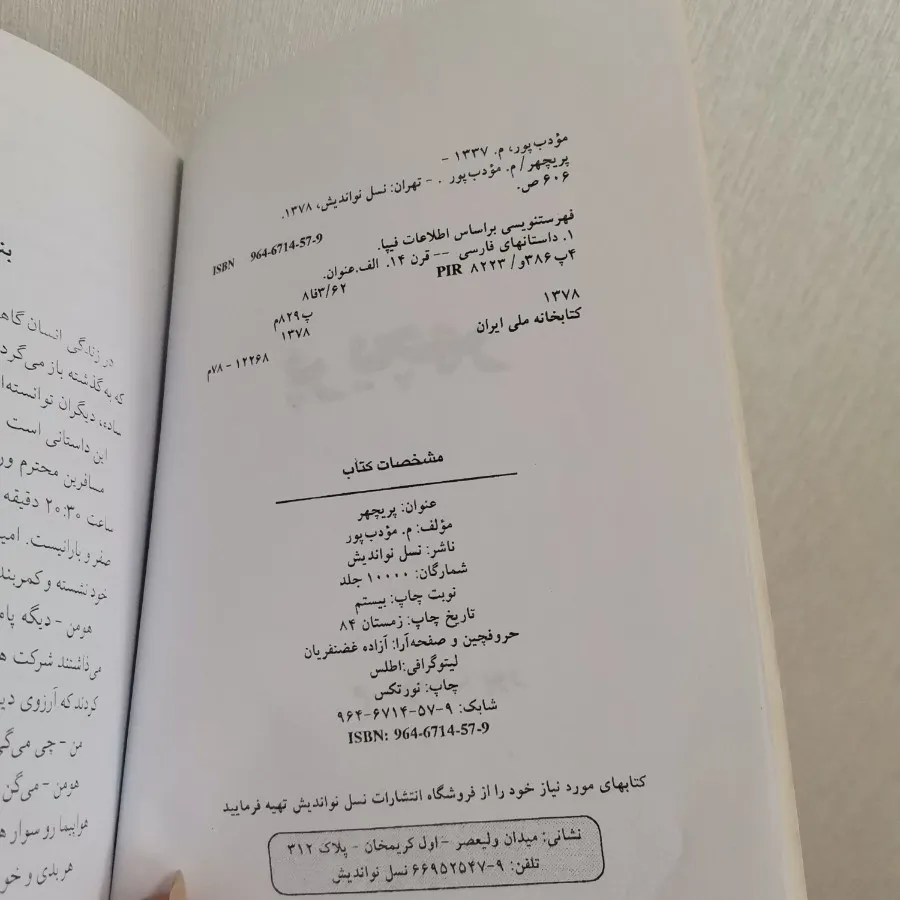 مؤدب‌پور، م. ۱۳۳۷ -
پریچهر / م. مؤدب‌پور . - تهران: نسل نواندیش، ۱۳۷۸.
۶۰۶ ص.
ISBN 964-6714-57-9
فهرستنویسی براساس اطلاعات فیپا.
۱. داستانهای فارسی -- قرن ۱۴. الف.عنوان.
۴پ۳۸۶و/ ۸۲۲۳ PIR
۳/۶۲فا۸
پ۸۲۹م
۱۳۷۸
۱۳۷۸
کتابخانه ملی ایران
۱۲۲۶۸ - ۷۸م
مشخصات کتاب
عنوان: پریچهر
مؤلف: م. مؤدب‌پور
ناشر: نسل نواندیش
شمارگان: ۱۰۰۰۰ جلد
نوبت چاپ: بیستم
تاریخ چاپ: زمستان ۸۴
حروفچین و صفحه‌آرا: آزاده غضنفریان
لیتوگرافی:اطلس
چاپ: نورتکس
شابک: ۹-۵۷-۶۷۱۴-۹۶۴
ISBN: 964-6714-57-9
کتابهای مورد نیاز خود را از فروشگاه انتشارات نسل نواندیش تهیه فرمایید
نشانی: میدان ولیعصر - اول کریمخان - پلاک ۳۱۲
تلفن: ۹-۶۶۹۵۲۵۴۷ نسل نواندیش
در زندگی انسان گاه
که به گذشته باز می‌گرد
ساده، دیگران توانسته‌ا
این داستانی است
مسافرین محترم ور
ساعت ۲۰:۳۰ دقیقه
صفر و بارانیست. امی
خود نشسته و کمربند
هومن - دیگه پام
می‌ذاشتند شرکت ه
کردند که آرزوی دی
من - چی می‌گی
هومن - می‌گن
هواپیما رو سوار ه
هر بدی و خو